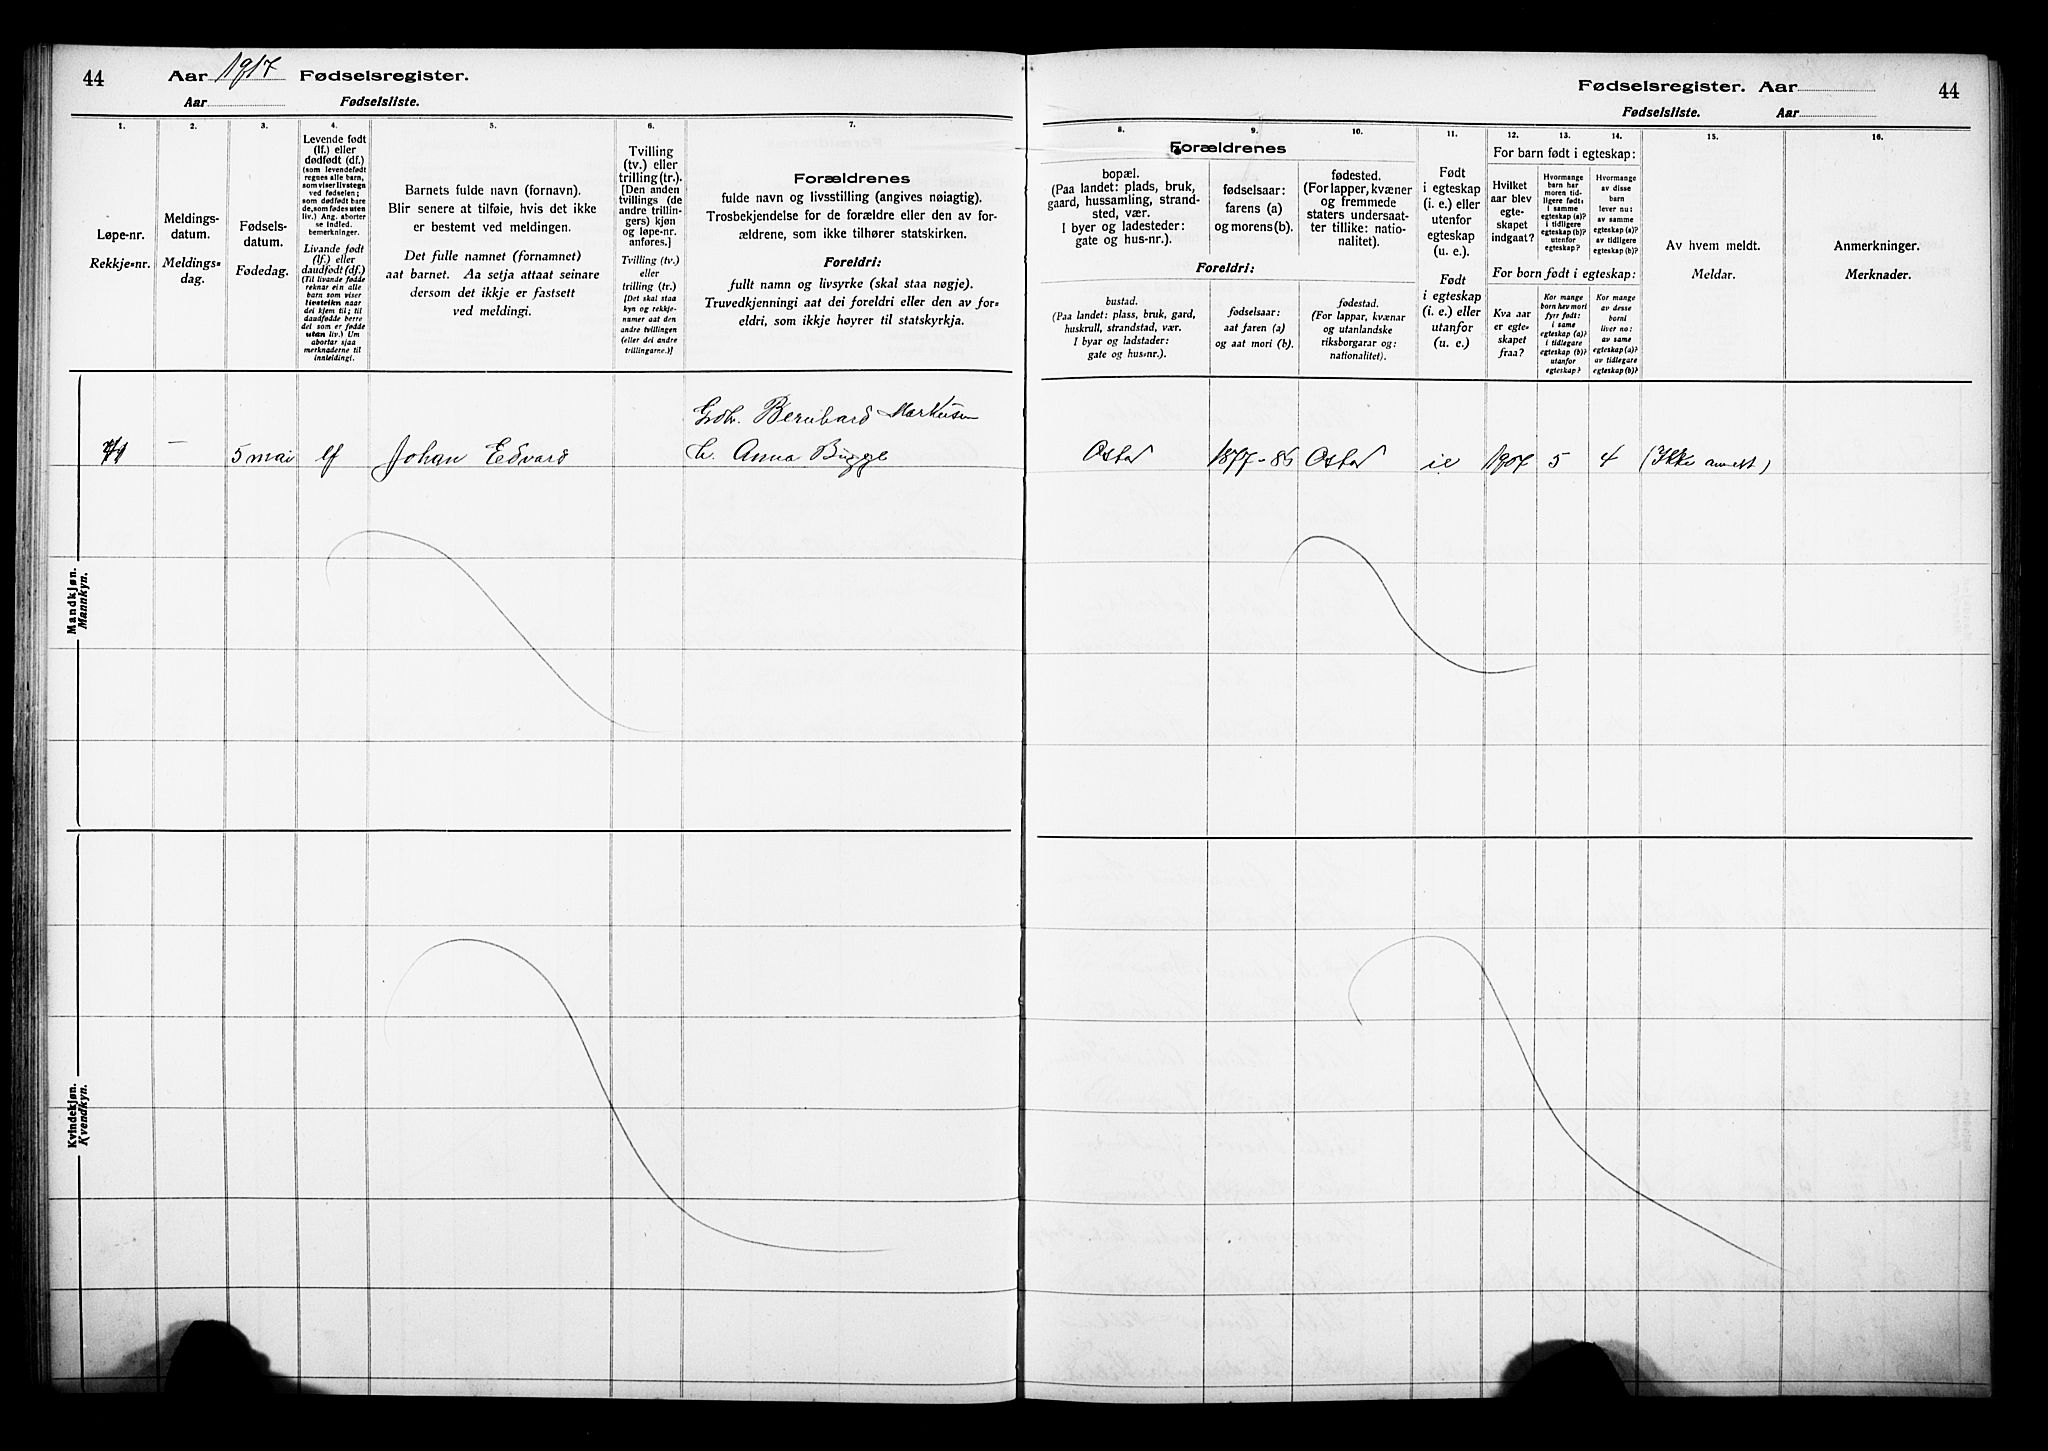 44
Aar 1917 Fødselsregister.
Aar Fødselsliste.
1.
2.
3.
4.
5.
6.
7.
Løpe-nr.
Rekkje=nr.
Meldings-
datum.
Meldings=
dag.
Fødsels-
datum.
Fødedag.
Levende født
(lf.) eller
dødfødt (df.)
(som levendefødt
regnes alle barn,
som viser livstegn
ved fødselen;
som dødfødt bare
de, som fødes uten
liv.) Ang. aborter
se indled.
bemerkninger.
Livande født
(lf.) eller
daudfødt (df.)
(Til livande fødde
reknar ein alle
barn som viser
livsteikn naar
dei kjem til; til
daudfødde berre
dei som er fødde
utan liv.) Um
abortar sjaa
merknaderne til
innleidingi.
Barnets fulde navn (fornavn).
Blir senere at tilføie, hvis det ikke
er bestemt ved meldingen.
Det fulle namnet (fornamnet)
aat barnet. Aa setja attaat seinare
dersom det ikkje er fastsett
ved meldingi.
Tvilling
(tv.) eller
trilling (tr.).
[Den anden
tvillings (de
andre trillin-
gers) kjøn
og løpe-nr.
anføres.]
Tvilling (tv.)
eller
trilling (tr.)
[Det skal staa
kyn og rekkje-
numer aat den
andre tvillingen
(eller dei andre
trillingarne.)]
Forældrenes
fulde navn og livsstilling (angives nøiagtig).
Trosbekjendelse for de forældre eller den av for-
ældrene, som ikke tilhører statskirken.
Foreldri:
fullt namn og livsyrke (skal staa nøgje).
Truvedkjenningi aat dei foreldri eller den av for=
eldri, som ikkje høyrer til statskyrkja.
Mandkjøn.
Mannkyn.
5 mai lf Johan Edvard
Bernhard Markusen
Anna Bugge
Kvindekjøn.
Kvendkyn.
Fødselsregister. Aar
44
Fødselsliste. Aar
8.
9.
10.
11.
12.
13.
14.
15.
16.
Forældrenes
bopæl.
(Paa landet: plads, bruk,
gaard, hussamling, strand-
sted, vær.
I byer og ladesteder:
gate og hus-nr.).
fødselsaar:
farens (a)
og morens (b).
fødested.
(For lapper, kvæner
og fremmede
staters undersaat-
ter tillike: natio-
nalitet).
Foreldri:
bustad.
(Paa landet: plass, bruk, gard,
huskrull, strandstad, vær.
I byar og ladstader:
gate og hus=nr.).
fødselsaar:
aat faren (a)
og aat mori (b).
fødestad.
(For lappar, kvænar
og utanlandske
riksborgarar og:
nationalitet).
Født
i egteskap
(i. e.) eller
utenfor
egteskap
(u. e.).
Født
i egteskap
(i. e.) eller
utanfor
(u. e.)
For barn født i egteskap:
Hvilket
aar blev
egte-
skapet
indgaat?
Hvormange
barn har
moren tid-
ligere født:
i samme
egteskap (a)?
i tidligere
egteskap (b)?
utenfor
egteskap?
Hvormange
av disse
barn
lever nu:
av samme
egteskap (a)?
av tidligere
egteskap (b)?
For born født i egteskap:
Kva aar
er egte=
skapet
fraa?
Kor mange
born hev mori
fyrr født:
i same
egteskap (a)?
i tidlegare
egteskap (b)?
utanfor
egteskap?
Kor mange
av desse
borni
liver no:
av same
egteskap (a)?
av tidlegare
egteskap (b)?
Av hvem meldt.
Meldar.
Anmerkninger.
Merknader.
Ostad 1877-86 Ostad ie 1907 5 4 (Ikke anmeldt)